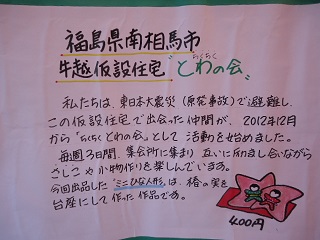 福島県南相馬市
牛越仮設住宅"とわの会"
ちくちく
私たちは、東日本大震災（原発事故）で避難し、
この仮設住宅で出会った仲間が、2012年12月
から"ちくちくとわの会"として活動を始めました。
毎週3日間、集会所に集まり互いに励まし合いながら
さしこや小物作りを楽しんでいます。
今回出品した"ミニひな人形"は、椿の実を
台座にして作った作品です。
400円